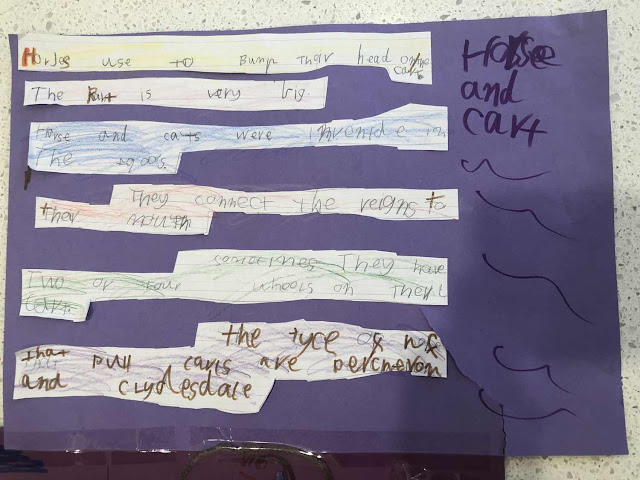 Horse
and
cart
Horses use to Bump their head on the
cart.
The Part is very big.
Horse and carts were invented in
The
They connect the reigns to
their mouth
sometimes They have
Two or four wheels on Their
cart
the tyce of
that pull carts are percheron
and clydesdale